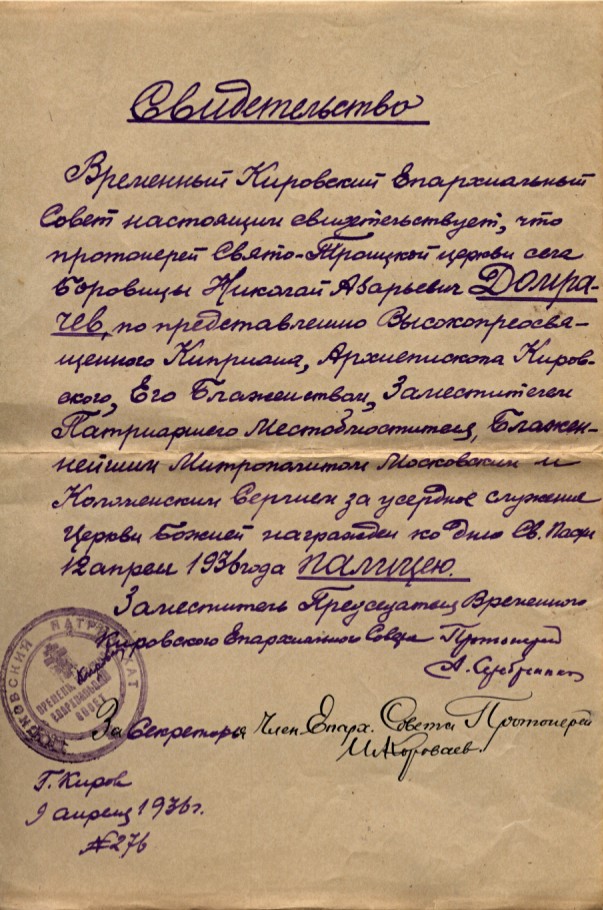 Свидетельство
Временный Кировский Епархиальный
Совет настоящим свидетельствует, что
протоиерей Свято-Троицкой церкви села
Боровицы Николай Азарьевич Домра-
чев, по представлению Высокопреосвя-
щенного Киприана, Архиепископа Киров-
ского, Его Блаженством, Заместителем
Патриаршего Местоблюстителя, Блажен-
нейшим Митрополитом Московским и
Коломенским Сергием за усердное служение
Церкви Божией награжден ко дню Св. Пасхи
12 апреля 1936 года палицею.
Заместитель Председателя Временного
Кировского Епархиального Совета Протоиерей
А.
За Секретаря Член Епарх. Совета Протоиерей
И. Короваев.
МОСКОВСКИЙ ПАТРИАРХАТ
ВРЕМЕНН.
ЕПАРХИАЛЬНЫЙ
СОВЕТ
Г. Киров
9 апреля 1936 г.
№ 276